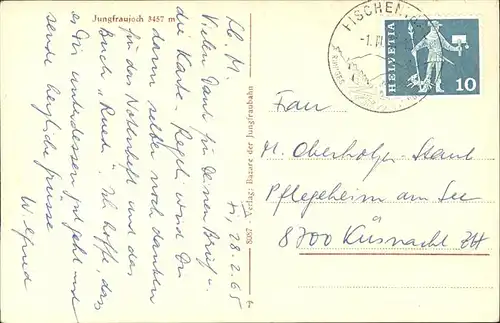 Jungfraujoch 3457 m
Fi, 28.2.65
Lb. M.
Vielen Dank für Deinen Brief u.
die Karte. Regeli wird Dir
dann selber noch danken
für das Notenheft und das
Buch "Ruedi". Ich hoffe, dass
es Dir unterdessen gut geht und
sende herzliche Grüsse
Wilfred
8057 Verlag: Bazare der Jungfraubahn
FISCHENTHAL
HELVETIA
10
Frau
M. Oberholzer-Staub
Pflegeheim am See
8700 Küsnacht ZH